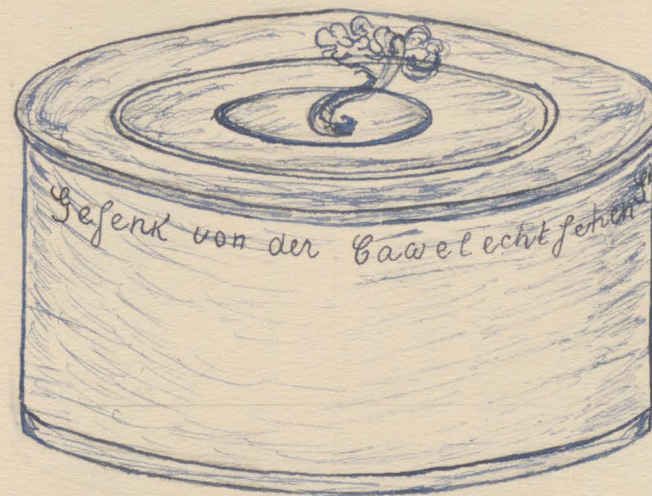 Gesenk von der Cawelechtschen